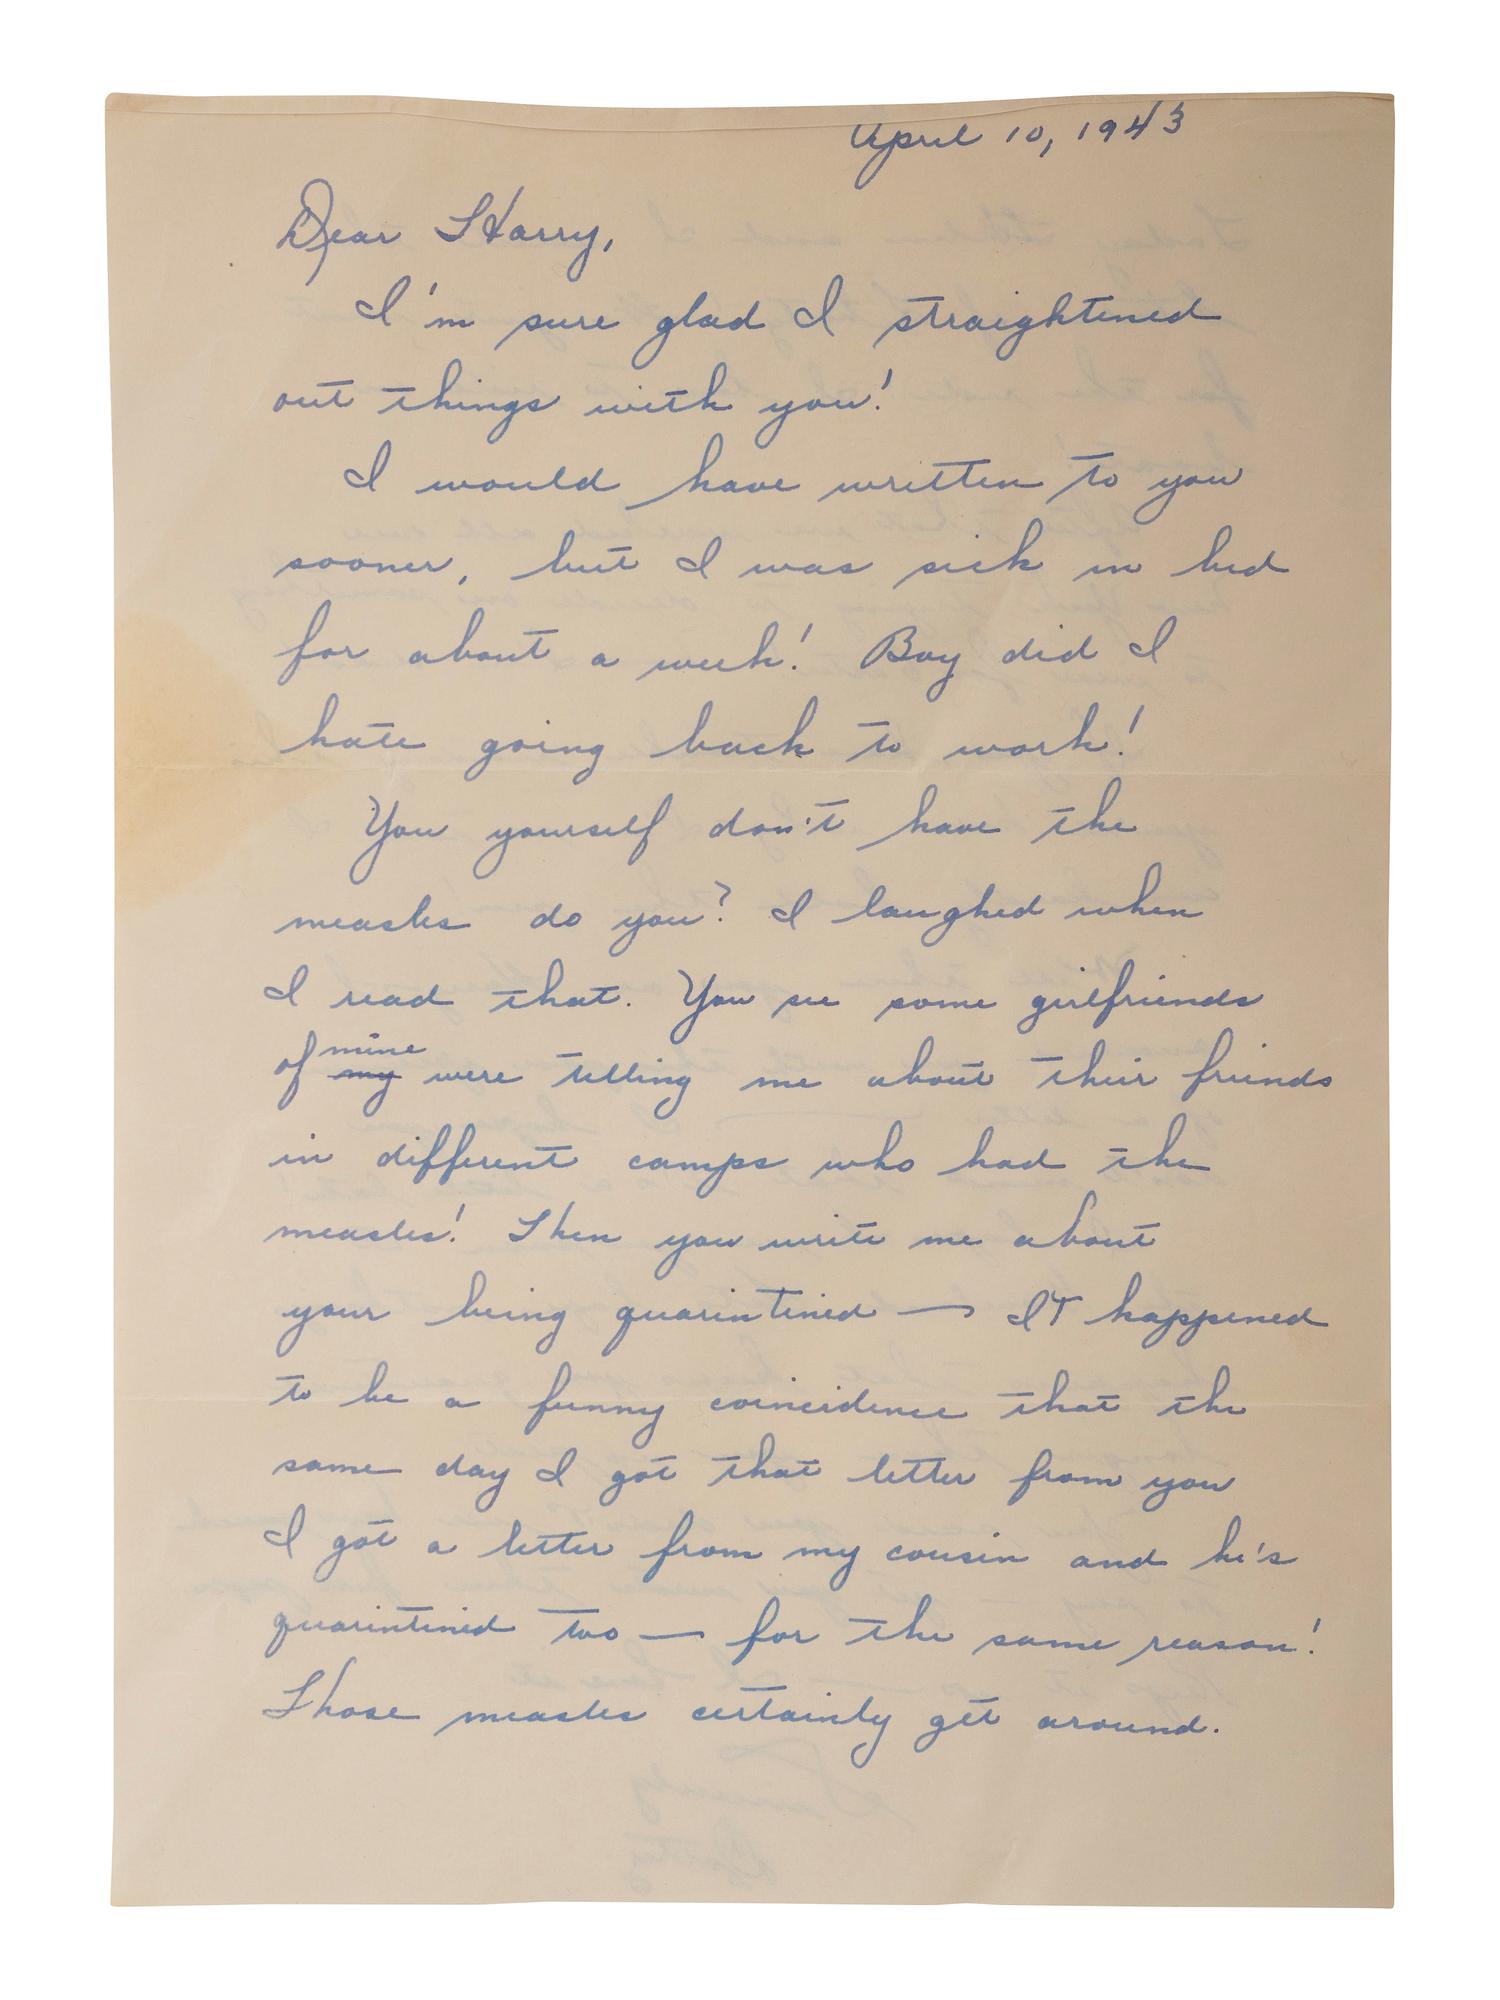 April 10, 1943
Dear Harry,
I'm sure glad I straightened
out things with you!
I would have written to you
sooner, but I was sick in bed
for about a week! Boy did I
hate going back to work!
You yourself don't have the
measles do you? I laughed when
I read that. You see some girlfriends
of mine my were telling me about their friends
in different camps who had the
measles! Then you write me about
your being quarintined — It happened
to be a funny coincidence that the
same day I got that letter from you
I got a letter from my cousin and he's
quarintined too — for the same reason!
Those measles certainly get around.